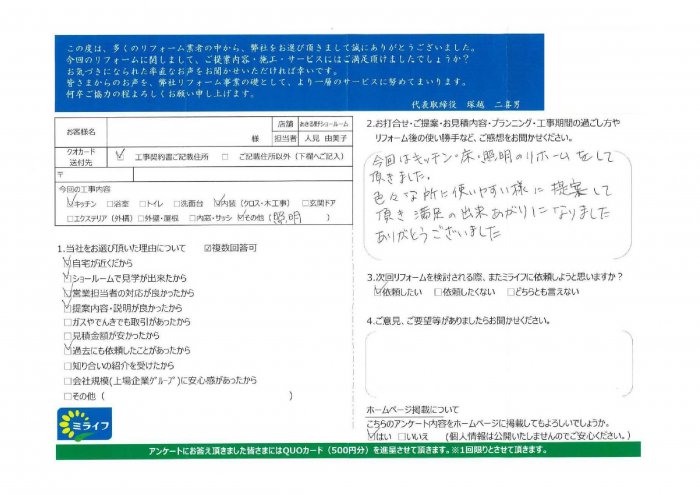 この度は、多くのリフォーム業者の中から、弊社をお選び頂きまして誠にありがとうございました。
今回のリフォームに関しまして、ご提案内容・施工・サービスにはご満足頂けましたでしょうか?
お気づきになられた率直なお声をお聞かせいただければ幸いです。
皆さまからのお声を、弊社リフォーム事業の礎として、より一層のサービスに努めてまいります。
何卒ご協力の程よろしくお願い申し上げます。
代表取締役 塚越 二喜男
お客様名 様
店舗 あきる野ショールーム
担当者 人見 由美子
クオカード送付先 ☑ 工事契約書ご記載住所 □ ご記載住所以外(下欄へご記入)
〒
今回の工事内容
☑キッチン □浴室 □トイレ □洗面台 ☑内装(クロス・木工事) □玄関ドア
□エクステリア(外構) □外壁・屋根 □内窓・サッシ ☑その他(照明)
1.当社をお選び頂いた理由について ☑複数回答可
☑自宅が近くだから
☑ショールームで見学が出来たから
☑営業担当者の対応が良かったから
☑提案内容・説明が良かったから
□ガスやでんきでも取引があったから
□見積金額が安かったから
☑過去にも依頼したことがあったから
□知り合いの紹介を受けたから
□会社規模(上場企業グループ)に安心感があったから
□その他( )
ミライフ
2.お打合せ・ご提案・お見積内容・プランニング・工事期間の過ごし方や
リフォーム後の使い勝手など、ご感想をお聞かせください。
今回はキッチン・床・照明のリホームをして
頂きました。
色々な所に使いやすい様に提案して
頂き満足の出来あがりになりました
ありがとうございました
3.次回リフォームを検討される際、またミライフに依頼しようと思いますか?
☑依頼したい □依頼したくない □どちらとも言えない
4.ご意見、ご要望等がありましたらお聞かせください。
ホームページ掲載について
こちらのアンケート内容をホームページに掲載してもよろしいでしょうか。
☑はい □いいえ (個人情報は公開いたしませんのでご安心ください。)
アンケートにお答え頂きました皆さまにはQUOカード(500円分)を進呈させて頂きます。※1回限りとさせて頂きます。